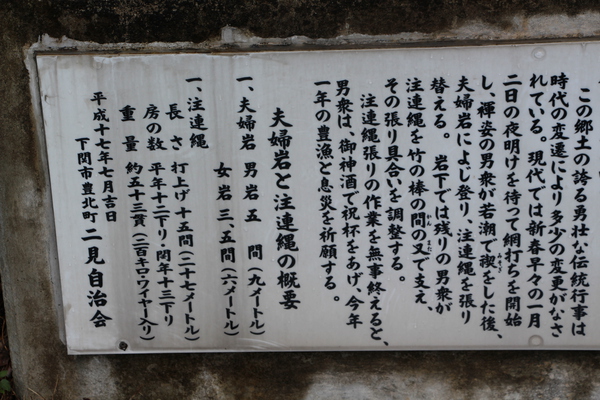 この郷土の誇る男壮な伝統行事は
時代の変遷により多少の変更がなさ
れている。現代では新春早々の一月
二日の夜明けを待って綱打ちを開始
し、褌姿の男衆が若潮で禊をした後、
夫婦岩によじ登り、注連縄を張り
替える。　岩下では残りの男衆が
注連縄を竹の棒の間の又で支え、
その張り具合いを調整する。
注連縄張りの作業を無事終えると、
男衆は、御神酒で祝杯をあげ、今年
一年の豊漁と息災を祈願する。
夫婦岩と注連縄の概要
一、夫婦岩　男岩五　間（九メートル）
女岩三、五間（六メートル）
一、注連縄
長さ　打上げ十五間（二十七メートル）
房の数　平年十二下り・閏年十三下り
重量　約五十三貫（二百キロ・ワイヤー入り）
平成十七年七月吉日
下関市豊北町　二見自治会